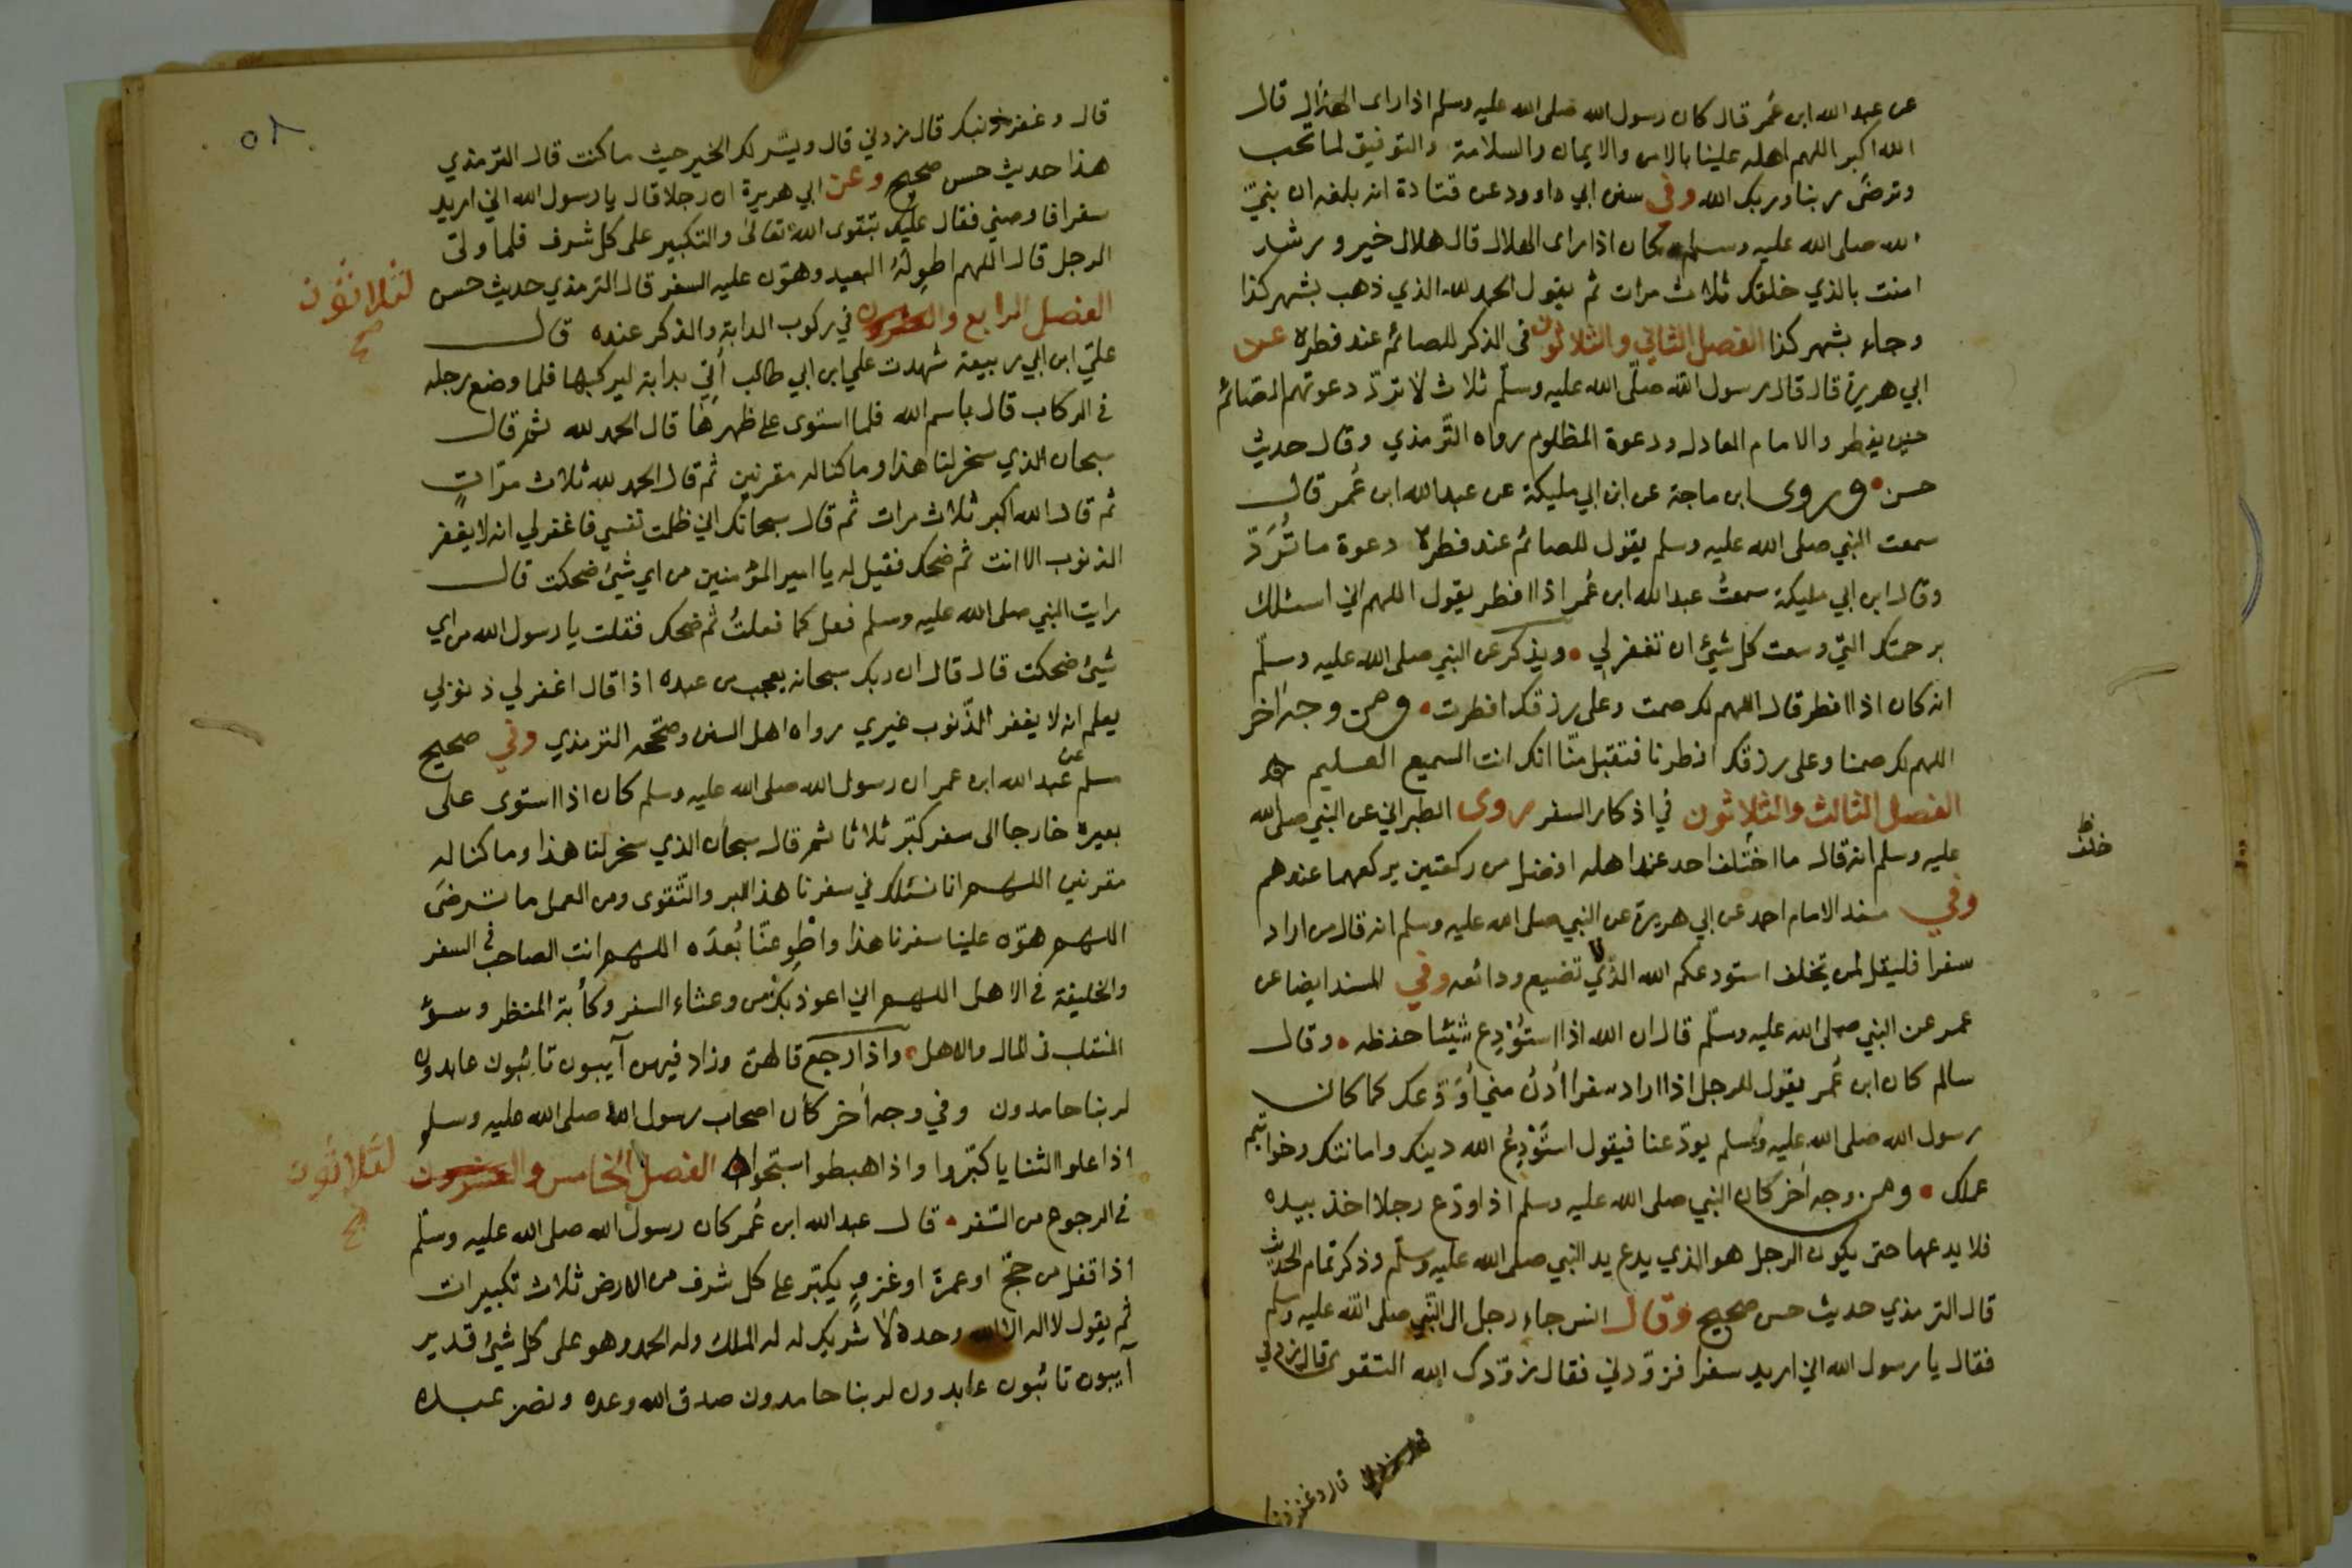 عن عبد الله ابن عُمر قال كان رسول الله صلى الله عليه وسلم اذا راى الهلال قال
الله اكبر اللهم اهله علينا بالامن والايمان والسلامة والتوفيق لما تحب
وترضى ربنا وربك الله وفي سنن ابي داوود عن قتادة انه بلغه ان نبيّ
الله صلى الله عليه وسلم كان اذا راى الهلال قال هلال خير ورشد
امنت بالذي خلقك ثلاث مرات ثم يقول الحمد لله الذي ذهب بشهر كذا
وجاء بشهر كذا الفصل الثاني والثلاثون في الذكر للصائم عند فطره عن
ابي هريرة قال قال رسول الله صلّى الله عليه وسلّم ثلاث لا تردّ دعوتهم الصائم
حين يفطر والامام العادل ودعوة المظلوم رواه التّرمذي وقال حديث
حسن وروى ابن ماجة عن ابن ابي مليكة عن عبد الله ابن عُمر قال
سمعت النبي صلى الله عليه وسلم يقول للصائم عند فطره دعوة ما تُرَدّ
وقال ابن ابي مليكة سمعتُ عبد الله ابن عُمر اذا افطر يقول اللهم اني اسئلك
برحمتك التي وسعت كل شيئ ان تغفر لي ويذكر عن النبي صلى الله عليه وسلّم
انه كان اذا افطر قال اللهم لك صمت وعلى رزقك افطرت ومن وجه اخر
اللهم لك صمنا وعلى رزقك افطرنا فتقبل منّا انك انت السميع العليم
الفصل الثالث والثلاثون في اذكار السفر روى الطبراني عن النبي صلى الله
عليه وسلم انه قال ما اختلف احد عند اهله افضل من ركعتين يركعهما عندهم
خلف
وفي مسند الامام احمد عن ابي هريرة عن النبي صلى الله عليه وسلم انه قال من اراد
سفرا فليقل لمن يخلف استودعكم الله الذي لا تضيع ودائعه وفي المسند ايضا عن
عمر عن النبي صلى الله عليه وسلّم قال ان الله اذا استُوْدِع شيئا حفظه وقال
سالم كان ابن عُمر يقول للرجل اذا اراد سفرا اُدنُ مني اُوَدّعك كما كان
رسول الله صلى الله عليه وسلم يودّعنا فيقول استَوْدِعُ الله دينك وامانتك وخواتيم
عملك ومن وجه اخر كان النبي صلى الله عليه وسلم اذا ودّع رجلا اخذ بيده
فلا يدعها حتى يكون الرجل هو الذي يدع يد النبي صلى الله عليه وسلّم وذكر تمام الحديث
قال الترمذي حديث حسن صحيح وقال انس جاء رجل الى النّبي صلى الله عليه وسلم
فقال يا رسول الله اني اريد سفرا فزوّدني فقال زوّدك الله التقوى قال زدني
قال وغفر ذنبك
٥٨
قال وغفر ذنبك قال زدني قال ويسّر لك الخير حيث ما كنت قال الترمذي
هذا حديث حسن صحيح وعن ابي هريرة ان رجلا قال يا رسول الله اني اريد
سفرا فاوصني فقال عليك بتقوى الله تعالى والتكبير على كل شرف فلما ولى
الرجل قال اللهم اطوِ لَهُ البعيد وهوّن عليه السفر قال الترمذي حديث حسن
الفصل الرابع والعشرون في ركوب الدابة والذكر عنده قال
لثلاثون
صح
عليّ ابن ابي ربيعة شهدت علي ابن ابي طالب اُتِيَ بدابة ليركبها فلما وضع رجله
في الركاب قال باسم الله فلما استوى على ظهرها قال الحمد لله ثم قال
سبحان الذي سخر لنا هذا وما كنا له مقرنين ثم قال الحمد لله ثلاث مرّاتٍ
ثم قال الله اكبر ثلاث مرات ثم قال سبحانك اني ظلمت نفسي فاغفر لي انه لا يغفر
الذنوب الا انت ثم ضحك فقيل له يا امير المؤمنين من اي شيئ ضحكت قال
رايت النبي صلى الله عليه وسلم فعل كما فعلتُ ثم ضحك فقلت يا رسول الله من اي
شيئ ضحكت قال قال ان ربك سبحانه يعجب من عبده اذا قال اغفر لي ذنوبي
يعلم انه لا يغفر الذّنوب غيري رواه اهل السنن وصحّحه الترمذي وفي صحيح
مسلم عن عبد الله ابن عمر ان رسول الله صلى الله عليه وسلم كان اذا استوى على
بعيره خارجا الى سفر كبّر ثلاثا ثم قال سبحان الذي سخر لنا هذا وما كنا له
مقرنين اللهم انا نسئلك في سفرنا هذا البر والتّقوى ومن العمل ما ترضى
اللهم هوّن علينا سفرنا هذا واطْوِ عنّا بُعدَه اللهم انت الصاحب في السفر
والخليفة في الاهل اللهم اني اعوذ بك من وعثاء السفر وكأبة المنظر وسؤ
المنقلب في المال والاهل واذا رجع قالهن وزاد فيهن آيبون تائبون عابدون
لربنا حامدون وفي وجه اخر كان اصحاب رسول الله صلى الله عليه وسلم
اذا علوا الثنايا كبّروا واذا هبطوا سبّحوا الفصل الخامس والعشرون
لثلاثون
صح
في الرجوع من السّفر قال عبد الله ابن عُمر كان رسول الله صلى الله عليه وسلّم
اذا قفل من حجّ او عمرة او غزوٍ يكبّر على كل شرف من الارض ثلاث تكبيرات
ثم يقول لا اله الا الله وحده لا شريك له له الملك وله الحمد وهو على كل شيئ قدير
آيبون تائبون عابدون لربنا حامدون صدق الله وعده ونصر عبده